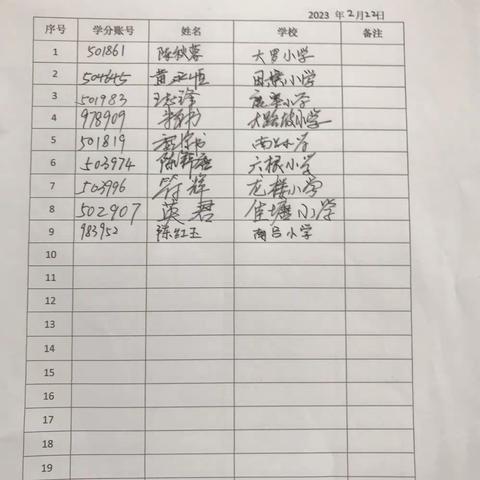 2023 年2月22日
序号 学分账号 姓名 学校 备注
1 501861 陈秋蓉 大罗小学
2 504645 黄 小学
3 501983 小学
4 978909 大路坡小学
5 501819
6 503974 六根小学
7 503996 符辉 龙楼小学
8 502907 英君 小学
9 983952 陈红玉 南吕小学
10
11
12
13
14
15
16
17
18
19